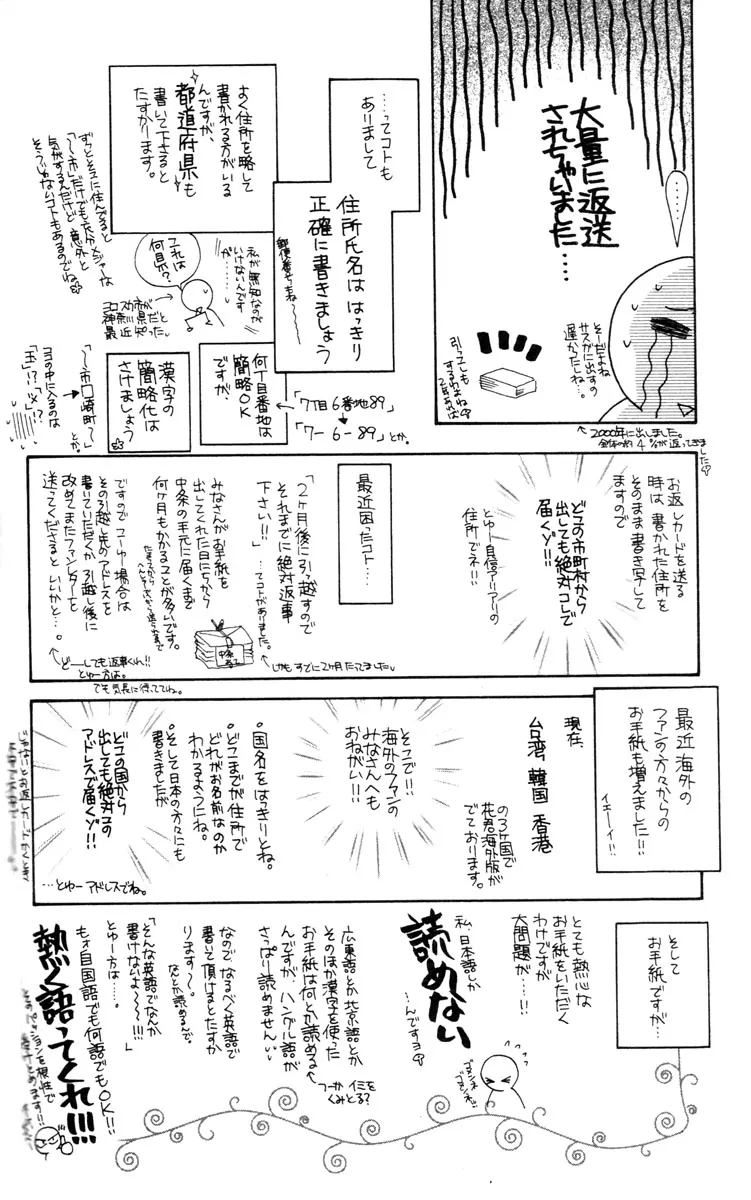 大量に返送
されちゃいました……
…………
そーだよね
サスガに出すの
遅かったしね…。
引っこしも
するわよね
2年あれば
2000年に出しました。
全体の約4%が返ってきました
…ってコトも
ありまして
住所氏名は はっきり
正確に書きましょう
郵便番号もね〜
よく住所を略して
書かれる方がいる
んですが、
都道府県も
書いて下さると
たすかります。
ずっとそこに住んでると
「〜市」だけでも充分メジャーな
気がするんだけど 意外と
そうじゃないコトもあるのでね
これは
何県？
私が無知なのが
いけないんです
が……
ヨコスカ市が
神奈川県だと
最近知った。
何丁目番地は
簡略OK
ですが、
「7丁目6番地89」
「7-6-89」とか。
漢字の
簡略化は
さけましょう
「〜市□崎町〜」
とか。
ヨの中に入るのは
「玉」!?「メ」!?
お返しカードを送る
時は 書かれた住所を
そのまま書き写して
ますので
どこの市町村から
出しても絶対コレで
届くゾ!!
とゆー自信アリアリの
住所でネ!!
最近困ったコト…
「2ヶ月後に引っ越すので
それまでに絶対返事
下さい!!」…ってコトがありました。
しかもすでに2ヶ月たってました
みなさんがお手紙を
出してくれた日にちから
中条の手元に届くまで
何ヶ月もかかることが多いです。
ですので コーゆー場合は
その引越し先のアドレスを
書いていただくか 引越し後に
改めてまたファンレターを
送ってくださると いいかと…。
どーしても返事くれ!!
とゆー方は。
でも気長に待っててね。
最近 海外の
ファンの方々からの
お手紙も増えました!!
イエーイ!!
現在、
台湾 韓国 香港
の3ヶ国で
花君海外版が
でております。
そこで!!
海外のファンの
みなさんへも
おねがい!!
・国名をはっきりとね。
・どこまでが住所で
どれがお名前なのか
わかるようにね。
・そして日本の方々にも
書きましたが
どこの国から
出しても絶対コの
アドレスで届くゾ!!
…とゆー アドレスでね。
そして
お手紙ですが…
とても熱心な
お手紙をいただく
わけですが
大問題が…!!
私、日本語しか
読めない
…んですョ
ゴメンネ
ゴメンネ
広東語とか北京語とか
そのほか漢字を使った
お手紙は何とか読める
んですが、ハングル語が
さっぱり読めません
つーか イミを
くみとる？
なのでなるべく英語で
書いて頂けるとたすか
ります〜。
なんとか読めるんで
「そんな英語でなが
書けないよ〜〜!!!」
とゆー方は……。
もぉ自国語でも何語でもOK!!
熱く語ってくれ!!!